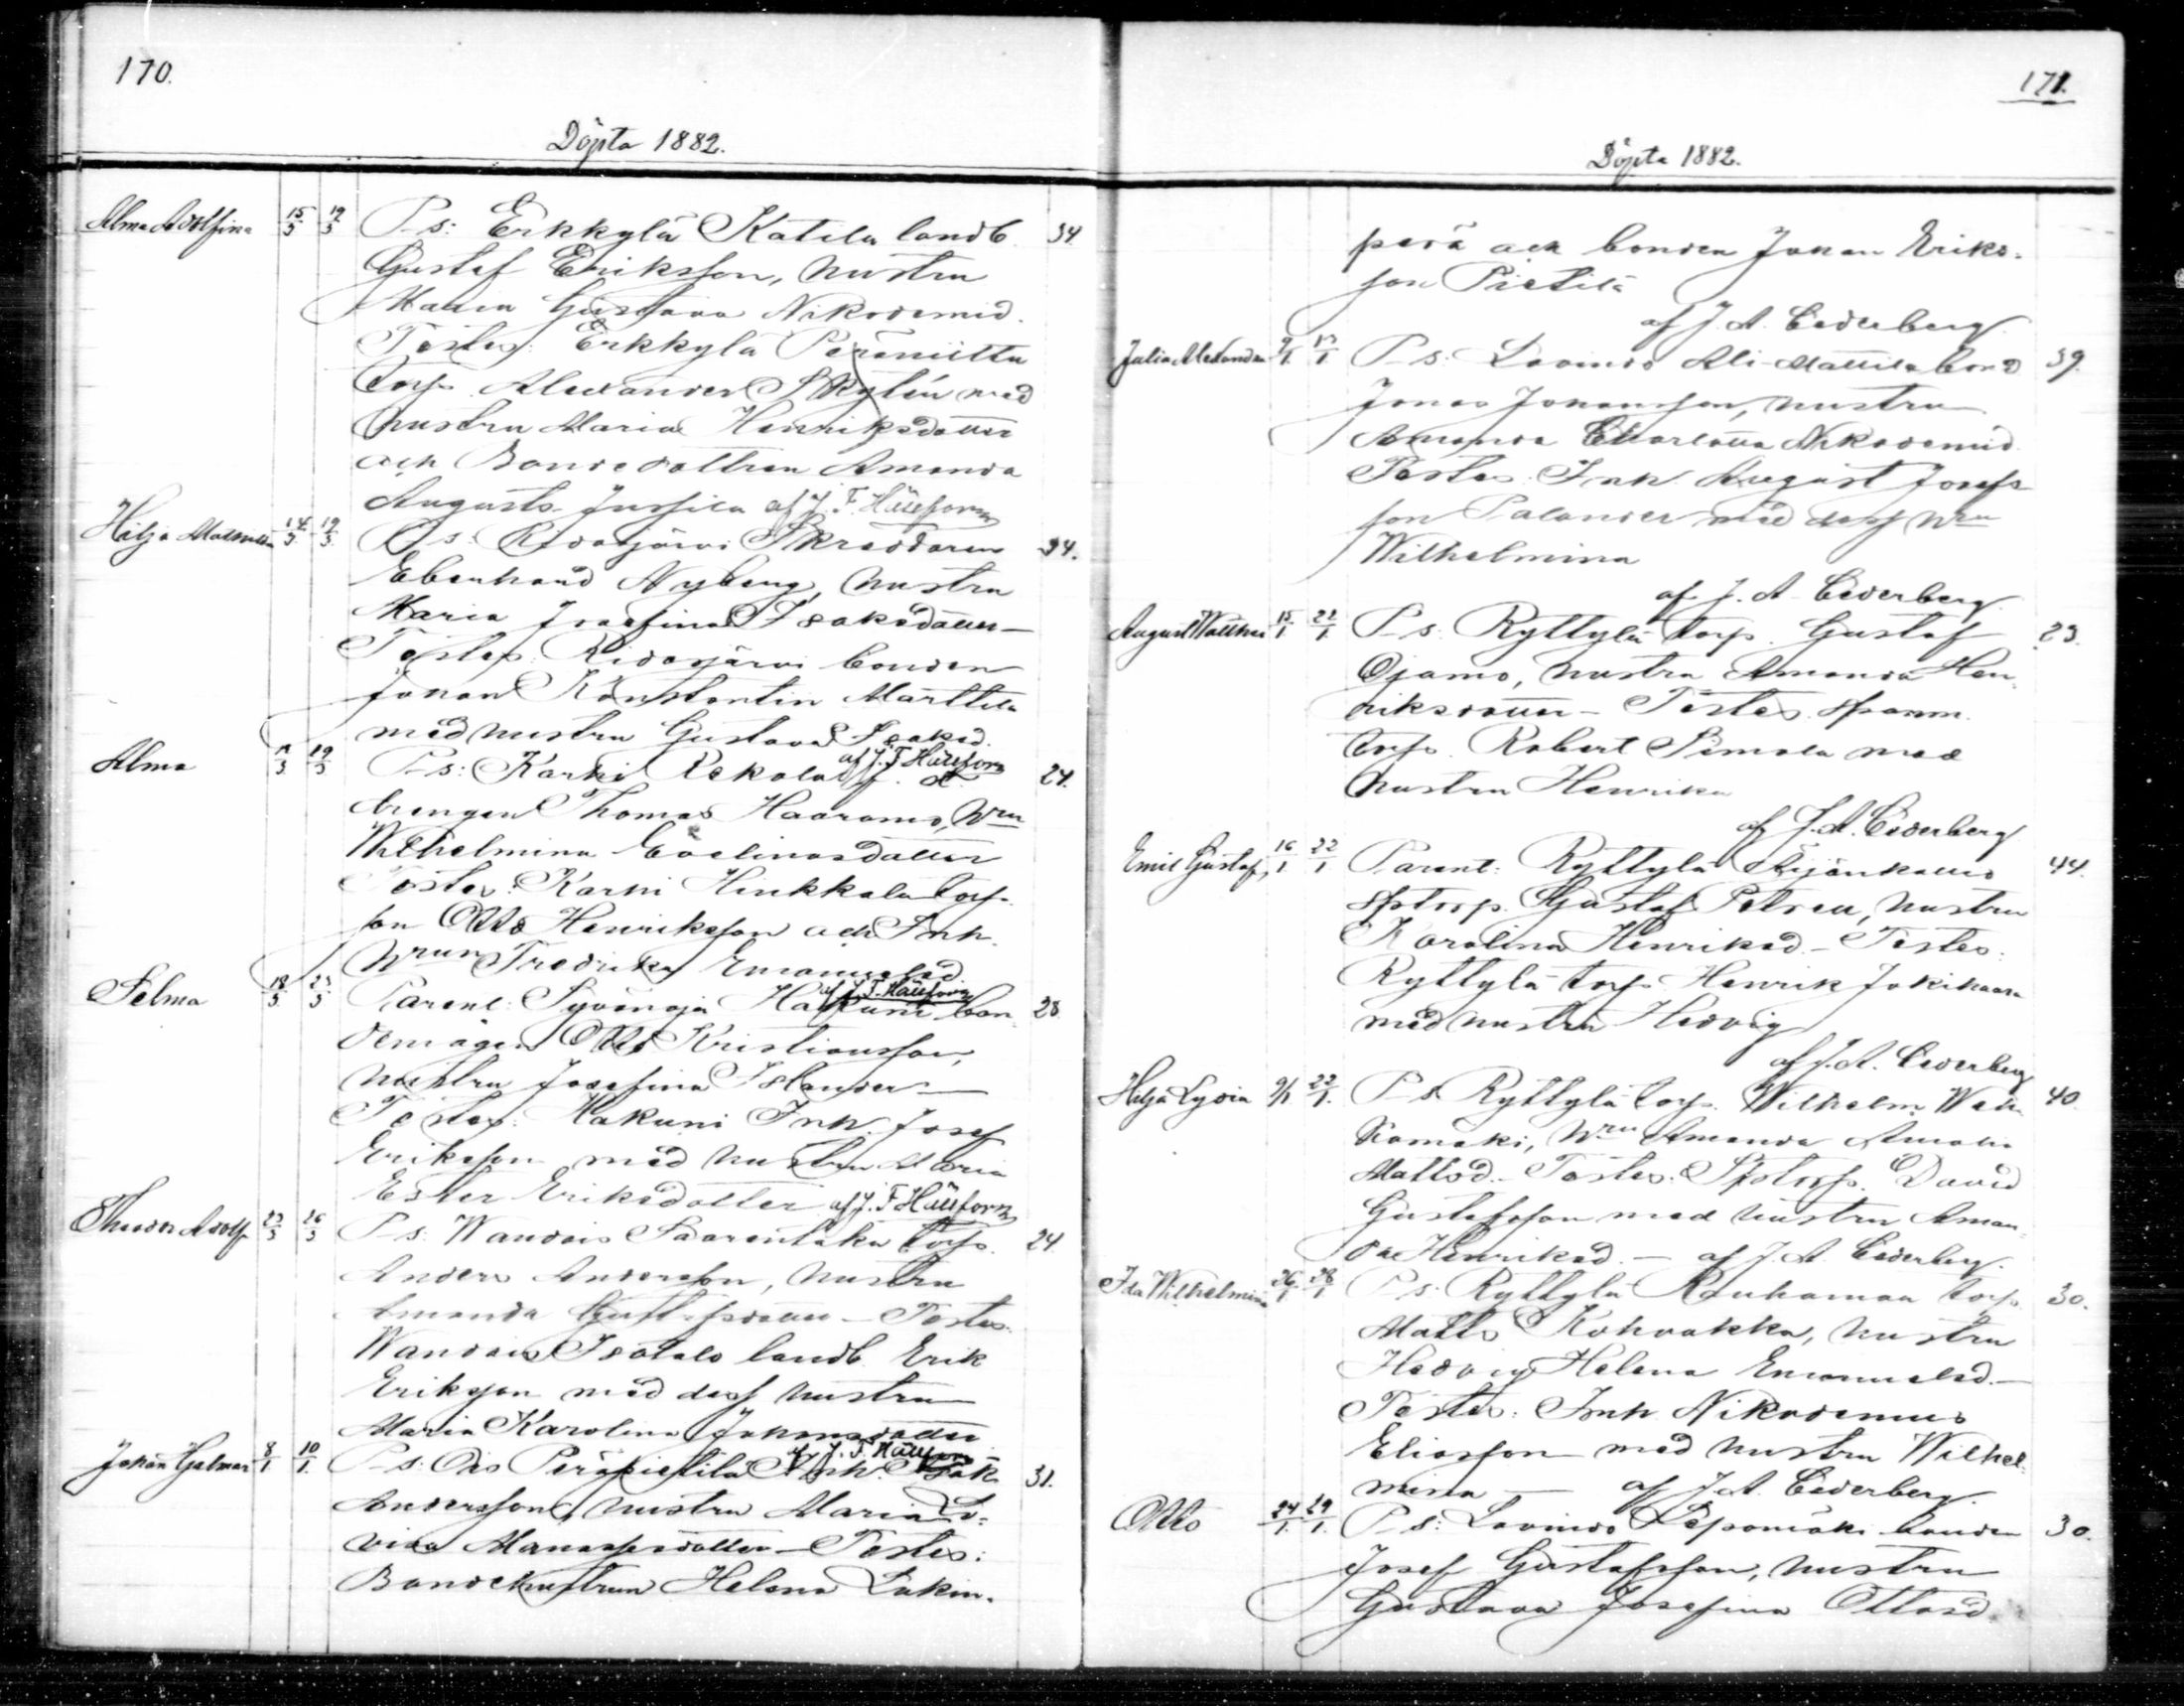 170.
Döpta 1882.
Alma Adolfina 15/3 19/3 P-s: Erkkylä Katila landb. 34
Gustaf Eriksson, hustru
Maria Gustava Nikodemid.
Testes: Erkkylä Peräniittu
torp. Alexander Skylén med
hustru Maria Henriksdotter
och Bondedottren Amanda
Augusta Jussila af J. F. Hällfors
Hilja Mathilda 14/3 19/3 P-s: Ridasjärvi Skräddaren 34.
Ebenhard Nyberg, hustru
Maria Josefina Isaksdotter –
Testes: Ridasjärvi bonden
Johan Konstantin Marttila
med hustru Gustava Isaksd.
af J. F. Hällfors
Alma 19/3 P-s: Karhi Kekola f. d. 24.
drengen Thomas Haaramo, Hru
Wilhelmina Evelinasdotter
Testes: Karhi Hinkkala torp.
son Otto Henriksson och Inh.
Hrun Fredrika Emanuelsd.
af J. F. Hällfors
Selma 18/3 23/3 Parent: Syvänoja Hakuni bon 28
demågen Otto Kristiansson,
hustru Josefina Islander –
Testes: Hakuni Inh. Josef
Eriksson med hustru Maria
Ester Eriksdotter af J. F. Hällfors
Theodor Adolf 23/3 26/3 P-s: Wandais Saarentaka torp. 24
Anders Andersson, hustru
Amanda Gustafsdotter – Testes:
Wandais Isotalo landb. Erik
Eriksson med dess hustru
Maria Karolina Johansdotter
af J. F. Hällfors
Johan Hjalmar 8/1 10/1 P-s: Ois Peräpietilä Inh. Isak 31.
Andersson, hustru Maria Lo-
visa Manassesdotter – Testes:
Bondehustrun Helena Lakin-
171.
Döpta 1882.
perä och bonden Johan Eriks-
son Pietilä
af J. A. Cederberg.
Julia Alexandra 9/1 P-s: Lavinto Ali-Mattila bond 39.
Jonas Johansson, hustru
Amanda Charlotta Nikodemid.
Testes: Inh August Josefs
son Palander med dess Hru
Wilhelmina
af J. A. Cederberg
August Walther 15/1 22/1 P-s: Ryttylä torp. Gustaf 23.
Ojamo, hustru Amanda Hen
riksdotter – Testes:
torp. Robert Simola med
hustru Henrika
af J. A. Cederberg
Emil Gustaf, 16/1 22/1 Parent: Ryttylä Äijänkallio 44.
sptorp. Gustaf Petrell, hustru
Karolina Henriksd – Testes:
Ryttylä torp. Henrik Jokihaara
med hustru Hedvig
af J. A. Cederberg
Hilja Lydia 9/1 22/1 P-s Ryttylä torp. Wilhelm 40
Hru Amanda Amalia
Mattsd. – Testes: Sptorp. David
Gustafsson med hustru Aman
da Henriksd. – af J. A. Cederberg.
Ida Wilhelmina 26/1 28/1 P-s: Ryttylä Rauhamaa torp 30.
Matts Kohvakka, hustru
Hedvig Helena Emanuelsd. –
Testes: Inh Nikodemus
Eliasson med hustru Wilhel
mina – af J. A. Cederberg.
Otto 24/1 29/1 P-s: Lavinto Lepomäki bonden 30.
Josef Gustafsson, hustru
Gustava Josefina Ottosd.